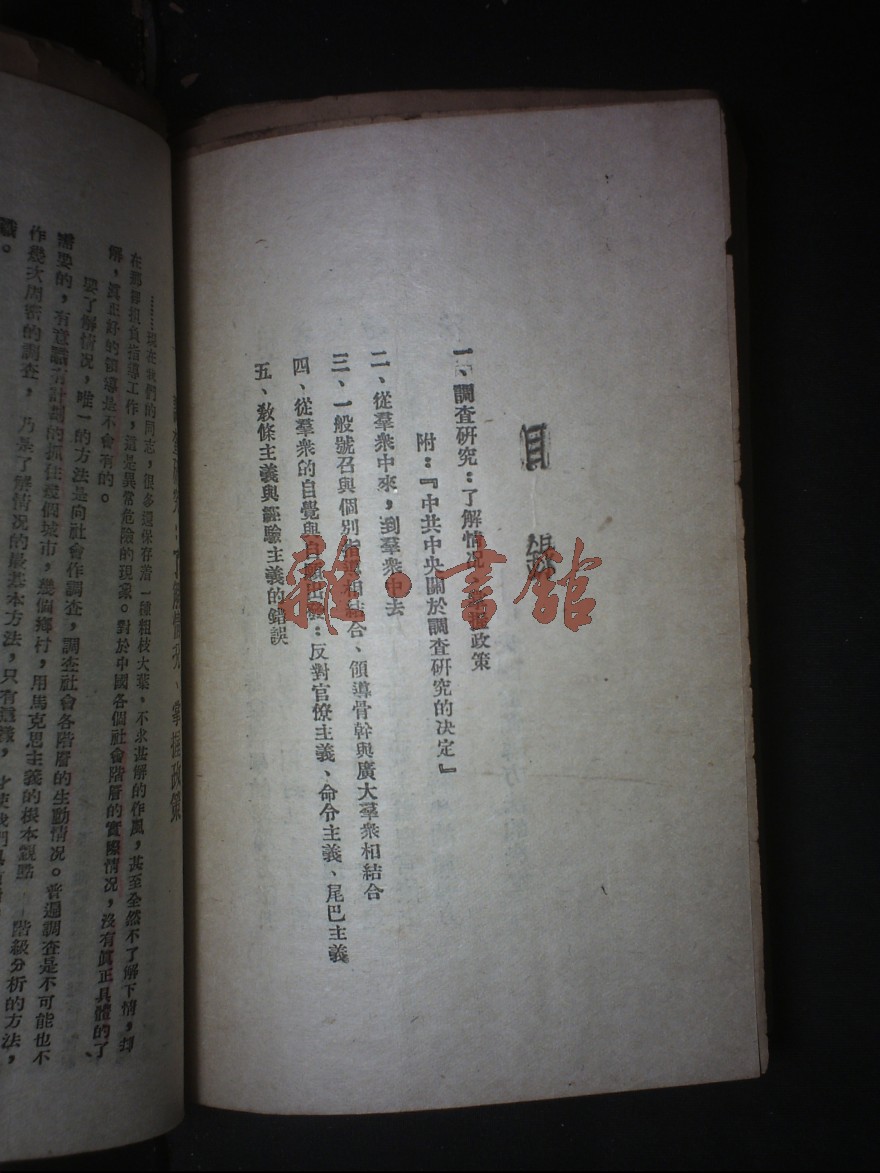 目錄
一、調查研究：了解情況、掌握政策
附：『中共中央關於調查研究的決定』
二、從羣衆中來，到羣衆中去
三、一般號召與個別指導相結合、領導骨幹與廣大羣衆相結合
四、從羣衆的自覺與自願出發：反對官僚主義、命令主義、尾巴主義
五、敎條主義與經驗主義的錯誤
雜·書館
一、調查研究：了解情况、掌握政策
……現在我們的同志，很多還保存着一種粗枝大葉，不求甚解的作風，甚至全然不了解下情，却
在那裡担負指導工作，這是異常危險的現象。對於中國各個社會階層的實際情況，沒有眞正具體的了
解，眞正好的領導是不會有的。
要了解情况，唯一的方法是向社會作調查，調查社會各階層的生動情况。普遍調查是不可能也不
需要的，有意識有計劃的抓住幾個城市，幾個鄉村，用馬克思主義的根本觀點——階級分析的方法，
作幾次周密的調查，乃是了解情况的最基本方法，只有這樣，才
識。